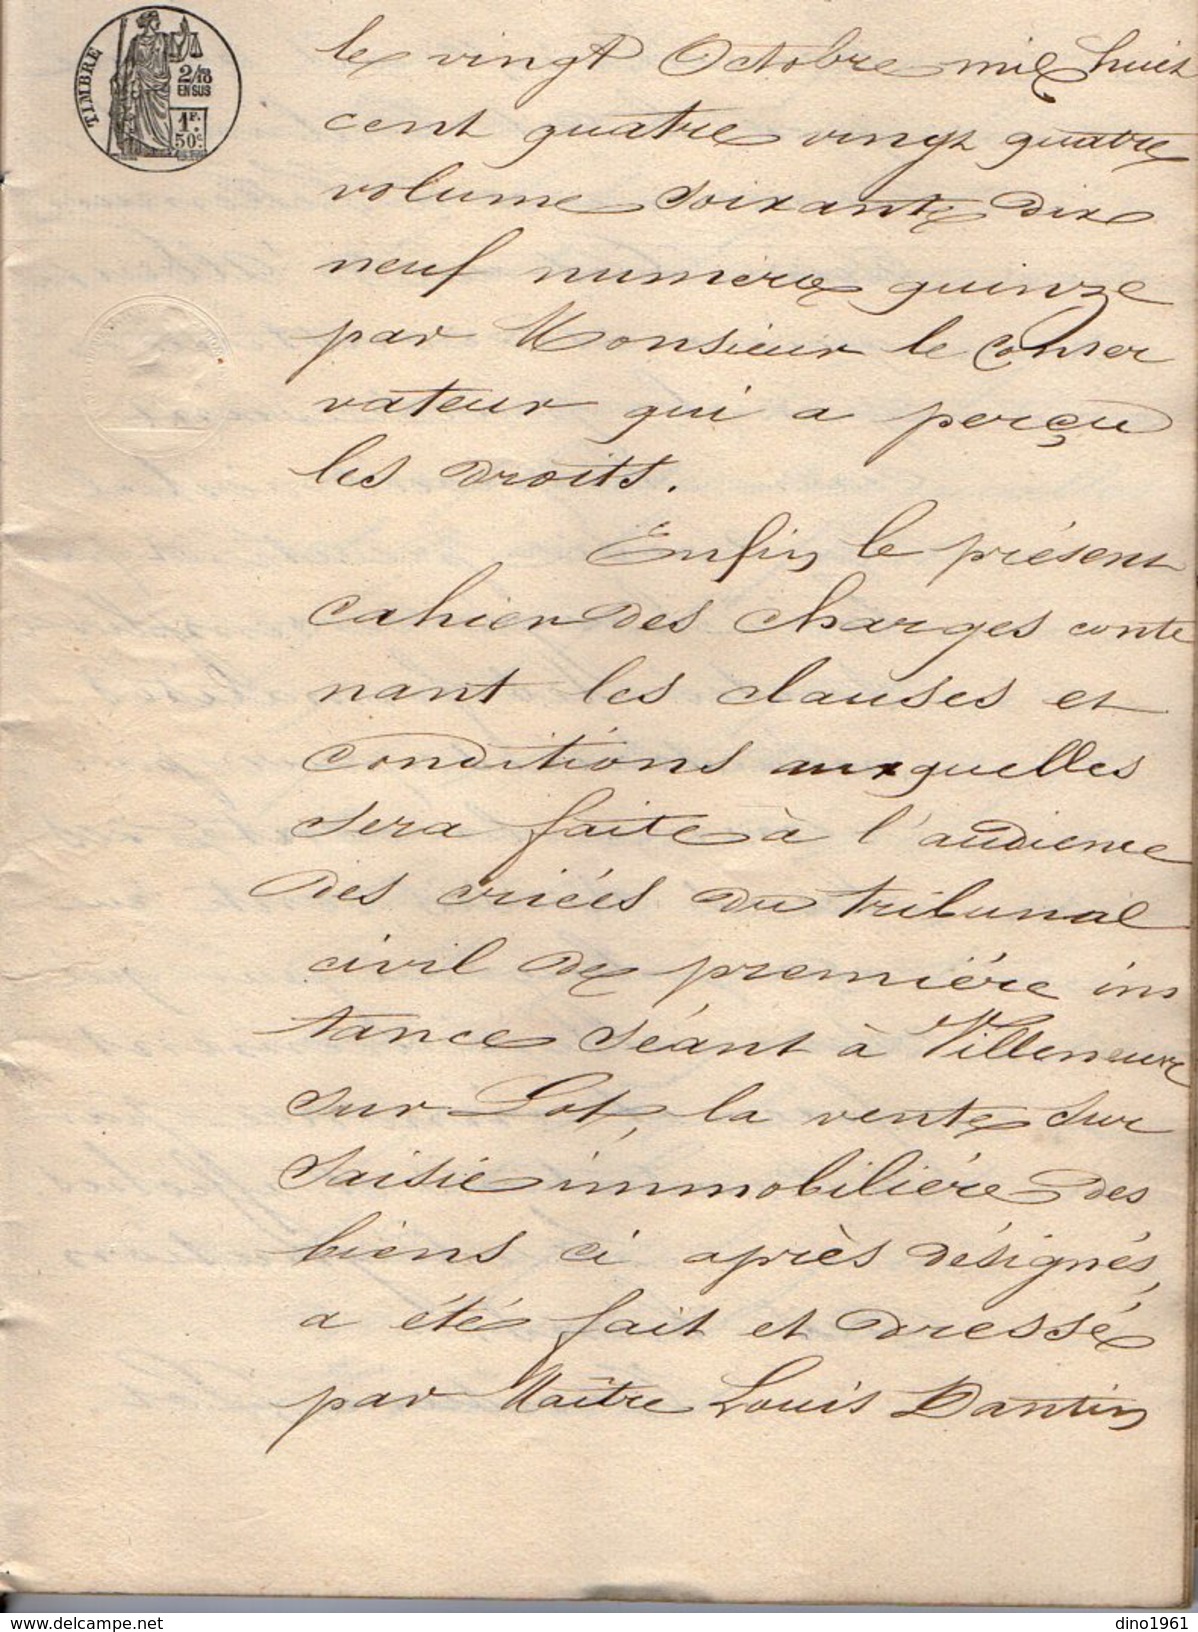 TIMBRE
2/10
EN SUS
1F.
50c.
le vingt Octobre mil huit
cent quatre vingt quatre
volume soixante dix
neuf numéro quinze
par Monsieur le conser
vateur qui a perçu
les droits.
Enfin le présent
cahier des charges conte
nant les clauses et
conditions auxquelles
sera faite à l'audience
des criées du tribunal
civil de première ins
tance séant à Villeneuve
sur Lot, la vente sur
saisie immobilière des
biens ci après désignés,
a été fait et dressé
par Maître Louis Dantin
dino1961